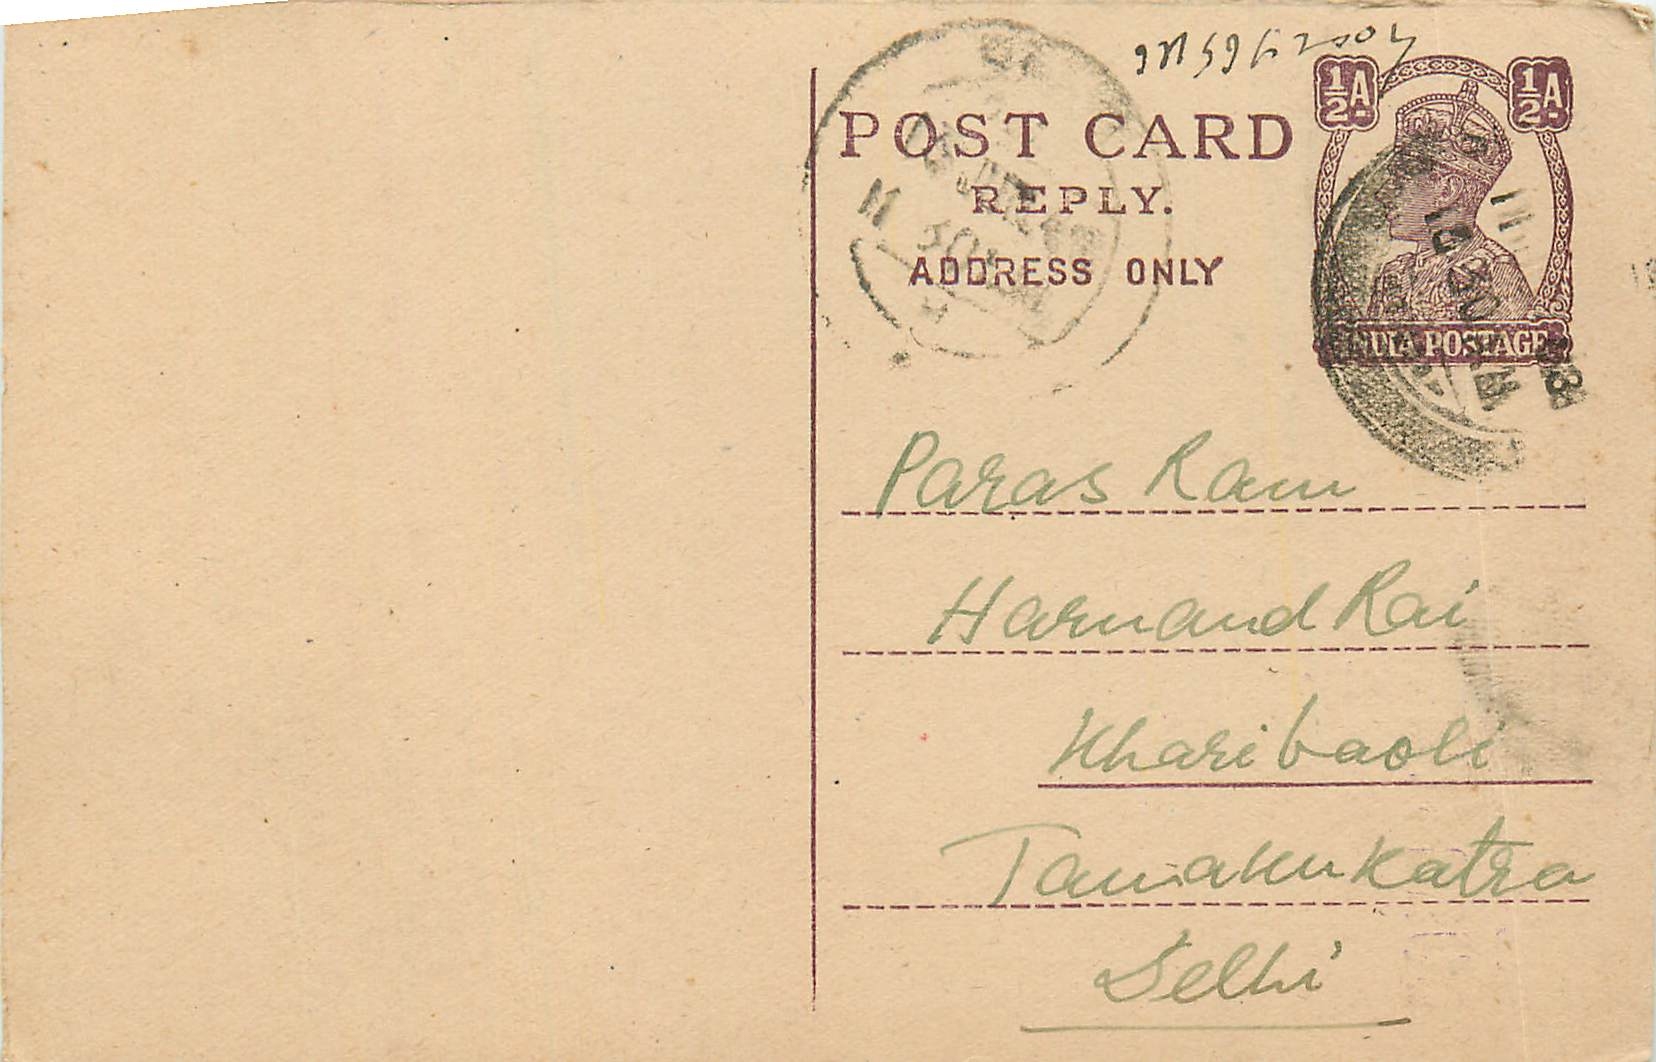 POST CARD
REPLY.
ADDRESS ONLY
½A ½A
INDIA POSTAGE
Paras Ram
Harnand Rai
Khari baoli
Tamaku Katra
Delhi